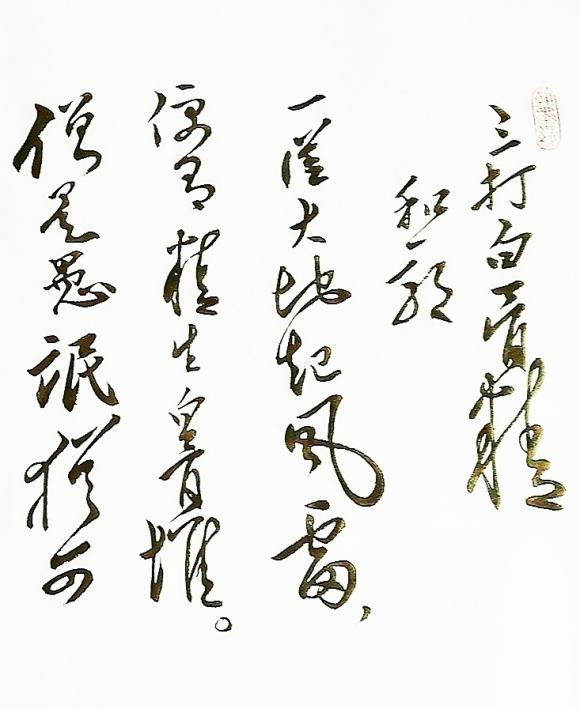 三打白骨精
和郭
一從大地起風雷,
便有精生白骨堆。
僧是愚氓猶可